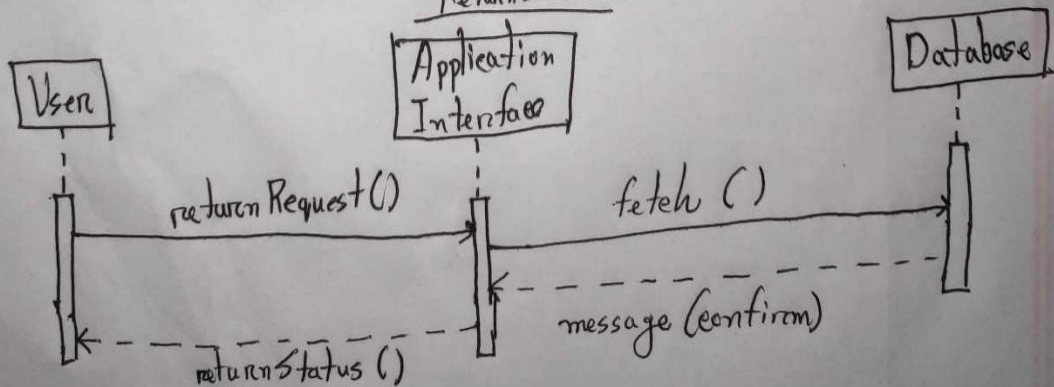 User
Application
Interface
Database
returnRequest()
fetch ()
message (confirm)
returnStatus ()